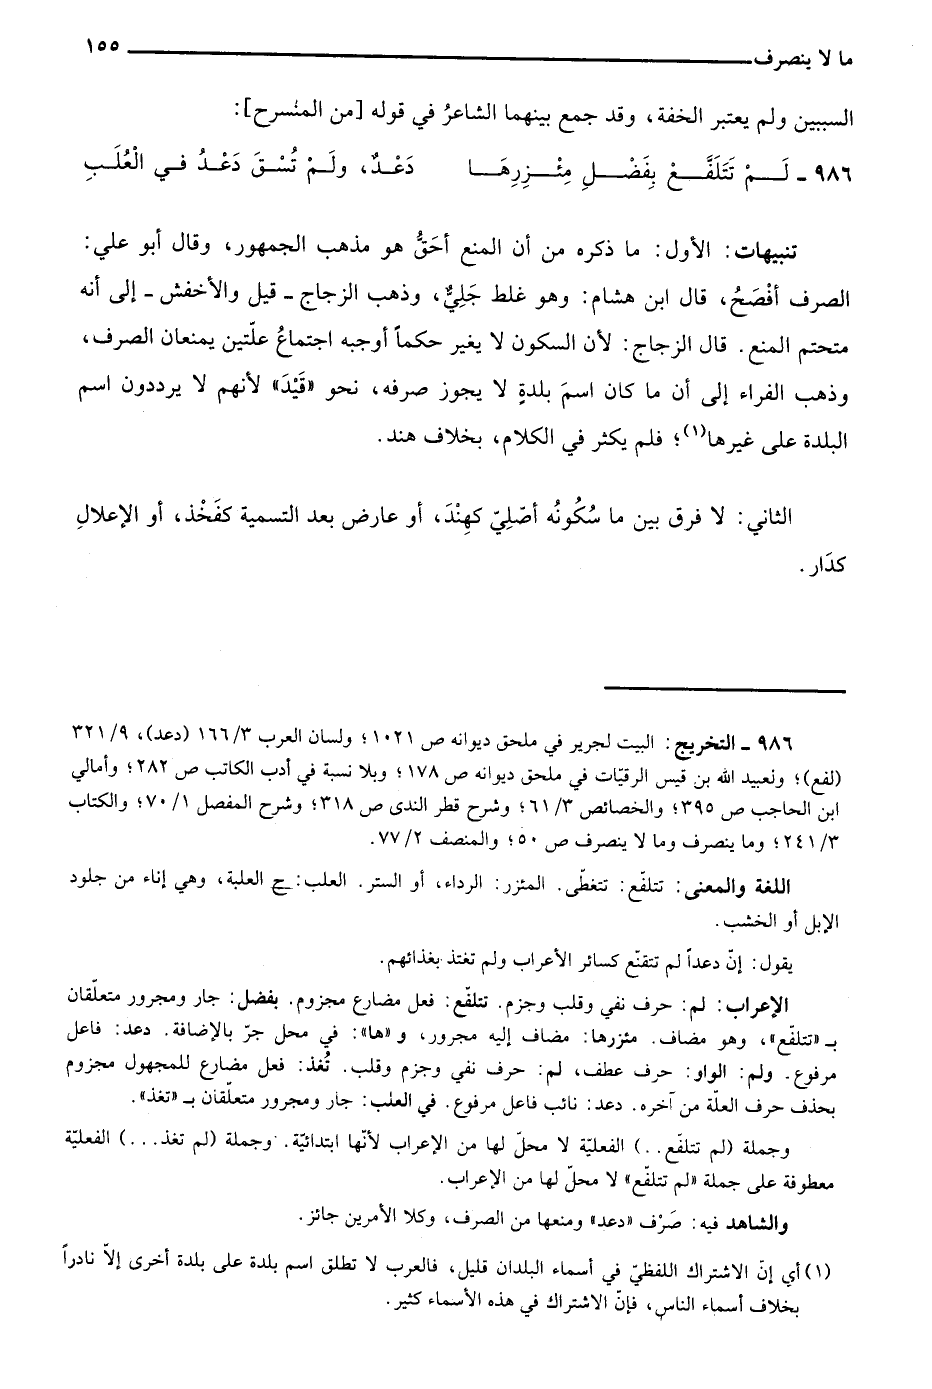 ما لا ينصرف ١٥٥
السببين ولم يعتبر الخفة، وقد جمع بينهما الشاعرُ في قوله [من المنسرح]:
٩٨٦ ـ لَـــمْ تَتَلَفَّـــعْ بِفَضْـــلِ مِئْـــزِرِهَـــا دَعْـدٌ، ولَـمْ تُسْـقَ دَعْـدُ فـي الْعُلَـبِ
تنبيهات: الأول: ما ذكره من أن المنع أحَقُّ هو مذهب الجمهور، وقال أبو علي:
الصرف أفْصَحُ، قال ابن هشام: وهو غلط جَلِيٌّ، وذهب الزجاج ـ قيل والأخفش ـ إلى أنه
متحتم المنع. قال الزجاج: لأن السكون لا يغير حكماً أوجبه اجتماعُ علّتين يمنعان الصرف،
وذهب الفراء إلى أن ما كان اسمَ بلدةٍ لا يجوز صرفه، نحو «فَيْدَ» لأنهم لا يرددون اسم
البلدة على غيرها(١)؛ فلم يكثر في الكلام، بخلاف هند.
الثاني: لا فرق بين ما سُكُونُه أصْلِيّ كهِنْدَ، أو عارض بعد التسمية كفَخْذ، أو الإعلالِ
كدَار.
٩٨٦ ـ التخريج: البيت لجرير في ملحق ديوانه ص ١٠٢١؛ ولسان العرب ٣/١٦٦ (دعد)، ٩/٣٢١
(لفع)؛ ولعبيد الله بن قيس الرقيّات في ملحق ديوانه ص ١٧٨؛ وبلا نسبة في أدب الكاتب ص ٢٨٢؛ وأمالي
ابن الحاجب ص ٣٩٥؛ والخصائص ٣/٦١؛ وشرح قطر الندى ص ٣١٨؛ وشرح المفصل ١/٧٠؛ والكتاب
٣/٢٤١؛ وما ينصرف وما لا ينصرف ص ٥٠؛ والمنصف ٢/٧٧.
اللغة والمعنى: تتلفّع: تتغطّى. المئزر: الرداء، أو الستر. العلب: ج العلبة، وهي إناء من جلود
الإبل أو الخشب.
يقول: إنّ دعداً لم تتقنّع كسائر الأعراب ولم تغتذ بغذائهم.
الإعراب: لم: حرف نفي وقلب وجزم. تتلفّع: فعل مضارع مجزوم. بفضل: جار ومجرور متعلّقان
بـ «تتلفّع»، وهو مضاف. مئزرها: مضاف إليه مجرور، و «ها»: في محل جرّ بالإضافة. دعد: فاعل
مرفوع. ولم: الواو: حرف عطف، لم: حرف نفي وجزم وقلب. تُغذ: فعل مضارع للمجهول مجزوم
بحذف حرف العلّة من آخره. دعد: نائب فاعل مرفوع. في العلب: جار ومجرور متعلّقان بـ «تغذ».
وجملة (لم تتلفّع..) الفعليّة لا محلّ لها من الإعراب لأنّها ابتدائيّة. وجملة (لم تغذ...) الفعليّة
معطوفة على جملة «لم تتلفّع» لا محلّ لها من الإعراب.
والشاهد فيه: صَرْف «دعد» ومنعها من الصرف، وكلا الأمرين جائز.
(١) أي إنّ الاشتراك اللفظيّ في أسماء البلدان قليل، فالعرب لا تطلق اسم بلدة على بلدة أخرى إلاّ نادراً
بخلاف أسماء الناس، فإنّ الاشتراك في هذه الأسماء كثير.